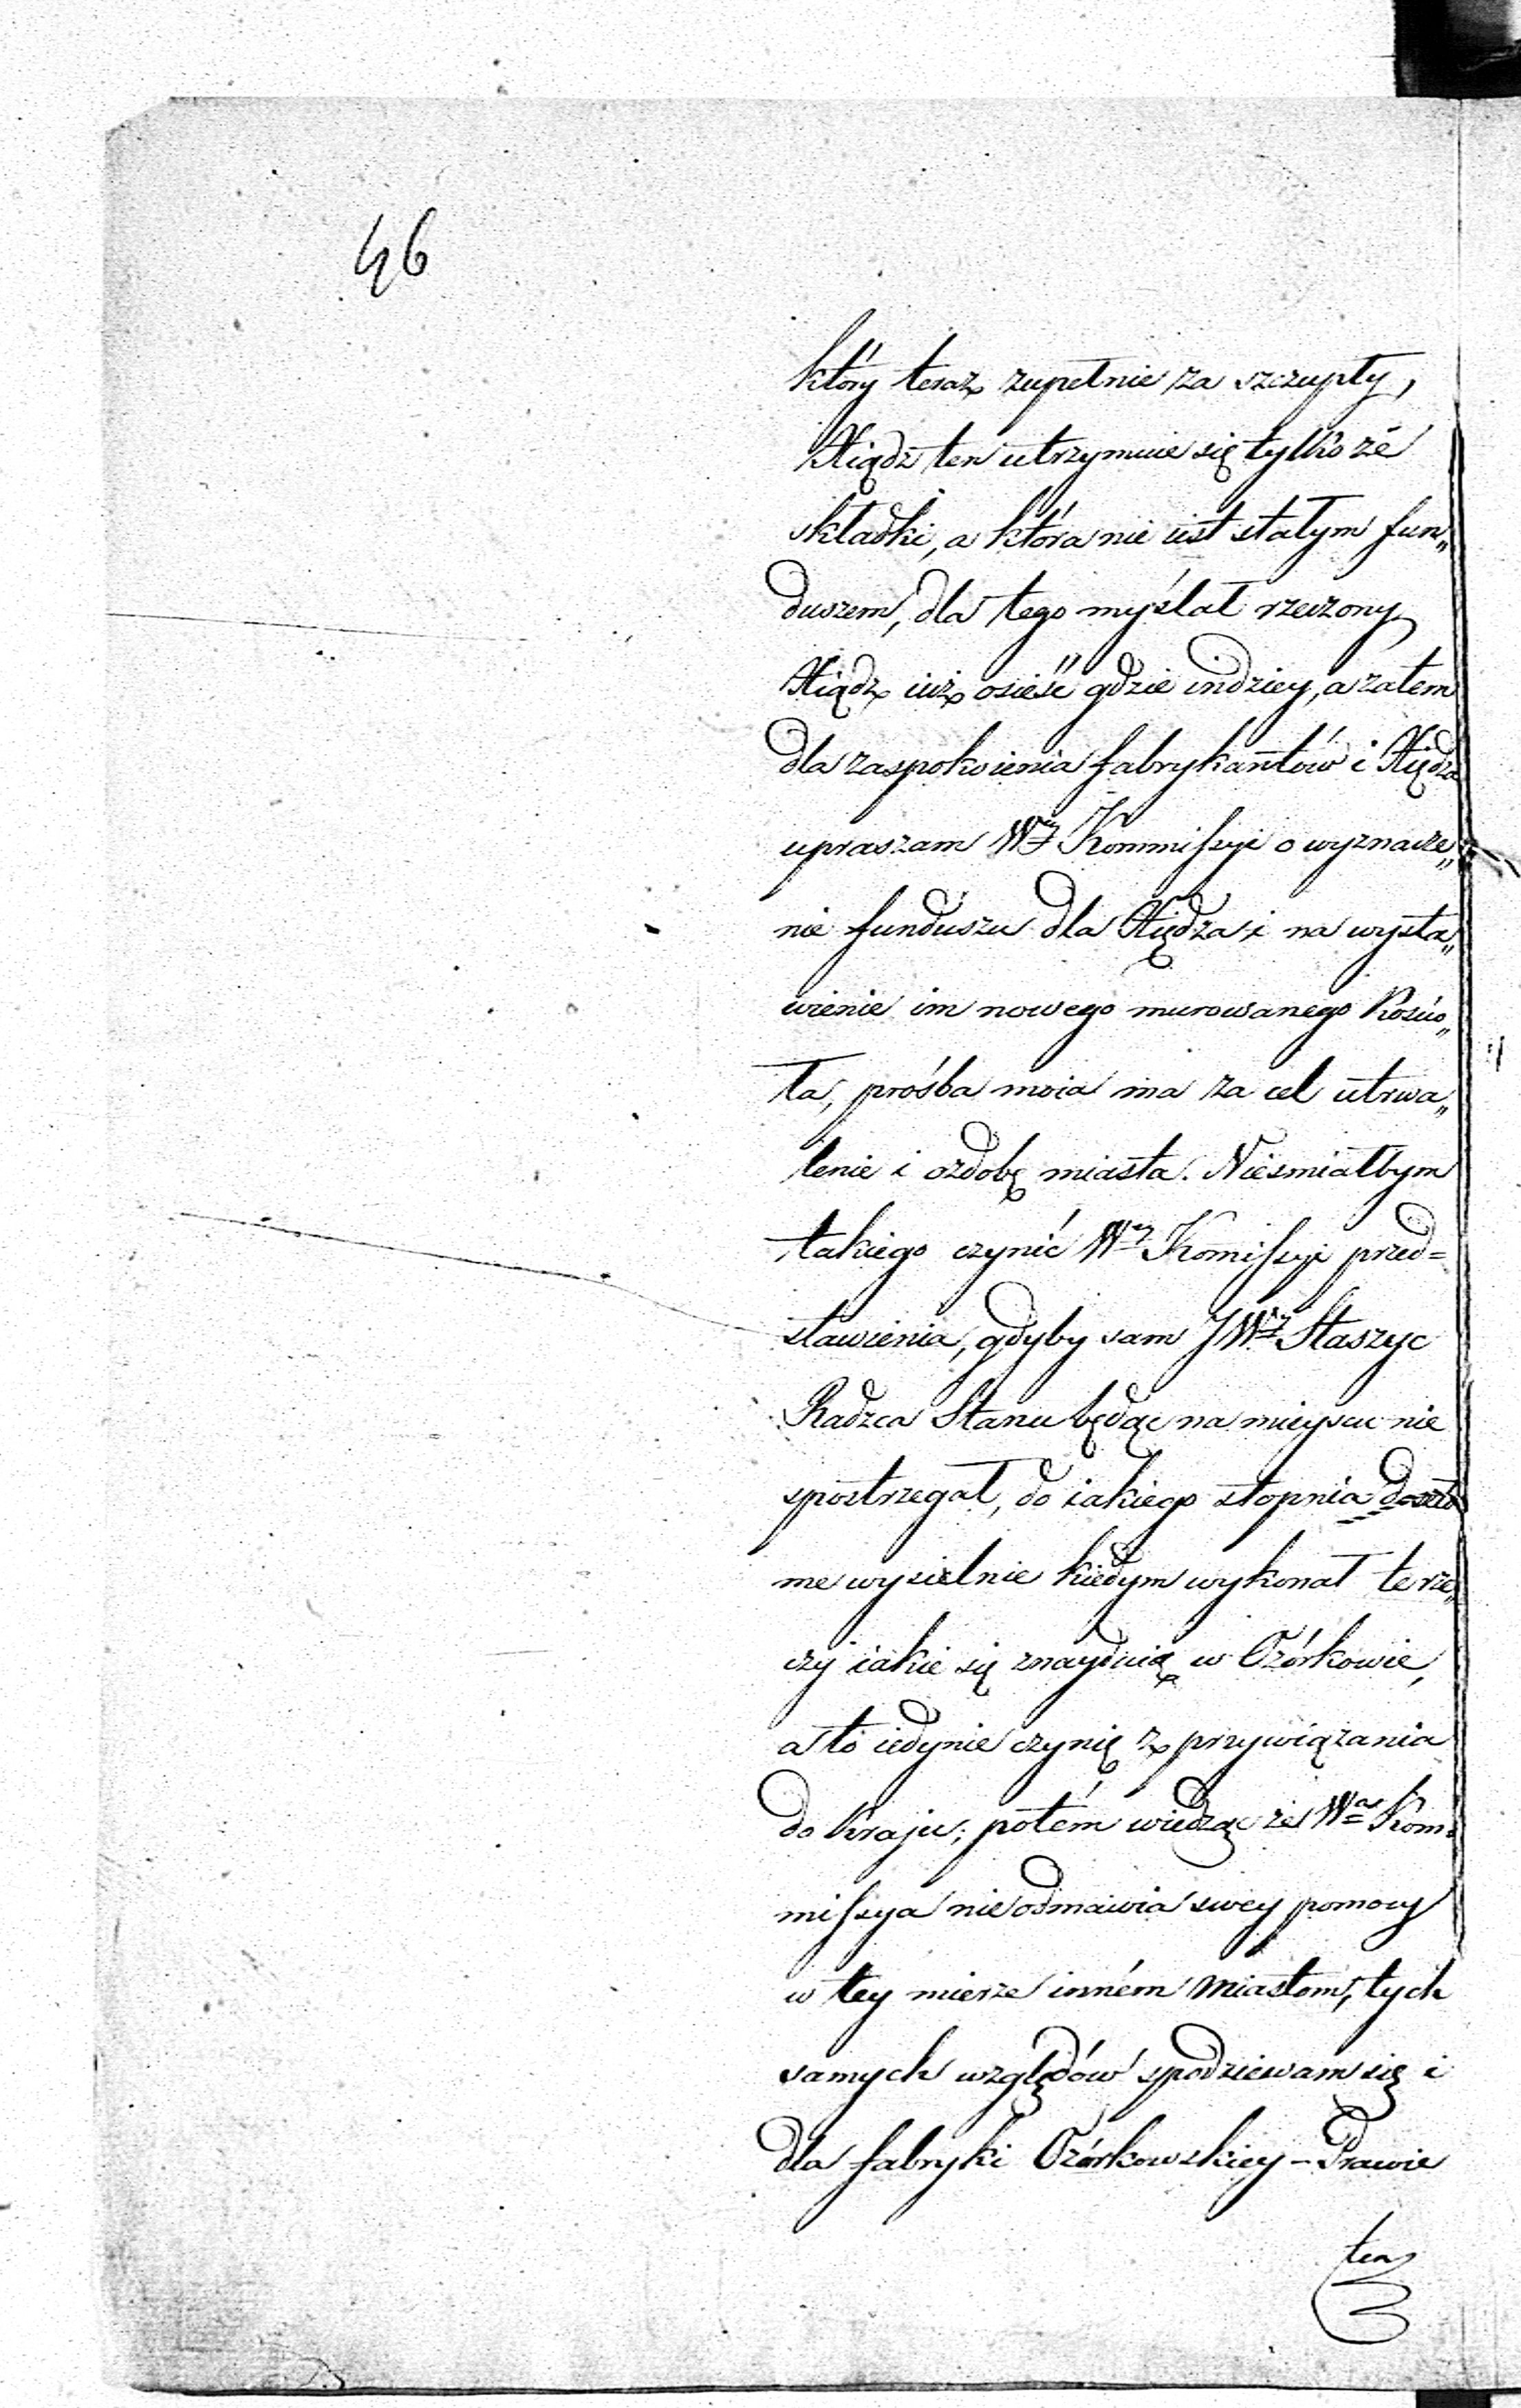 46
który teraz zupełnie za szczupły,
Xiądz ten utrzymuie się tylko zé
składki, a która nie iest stałym fun„
duszem, dla tego myślał rzeczony
Xiądz iuż osieść gdzie indziey, a zatem
dla zaspokoienia fabrykantów i Xiędza
upraszam Wy Kommissyi o wyznacze„
nie funduszu dla Xiędza i na wysta„
wienie im nowego murowanego Kościo„
ła, prośba moia ma za cel utrwa„
lenie i ozdobę miasta. Nieśmiałbym
takiego czynić Wy Komissyi przed=
stawienia, gdyby sam JWy Staszyc
Radzca Stanu będąc na mieyscu nie
spostrzegał, do iakiego stopnia doszło
me wysielnie kiedym wykonał te rze„
czy iakie się znayduią w Ozórkowie,
a to iedynie czynię z przywiązania
do Kraju; potém wiedząc że Wa Kom„
missya nie odmawia swey pomocy
w tey mierze inném Miastom, tych
samych względów spodziewam się i
dla fabryki Ozórkowskiey – Prawie
ten